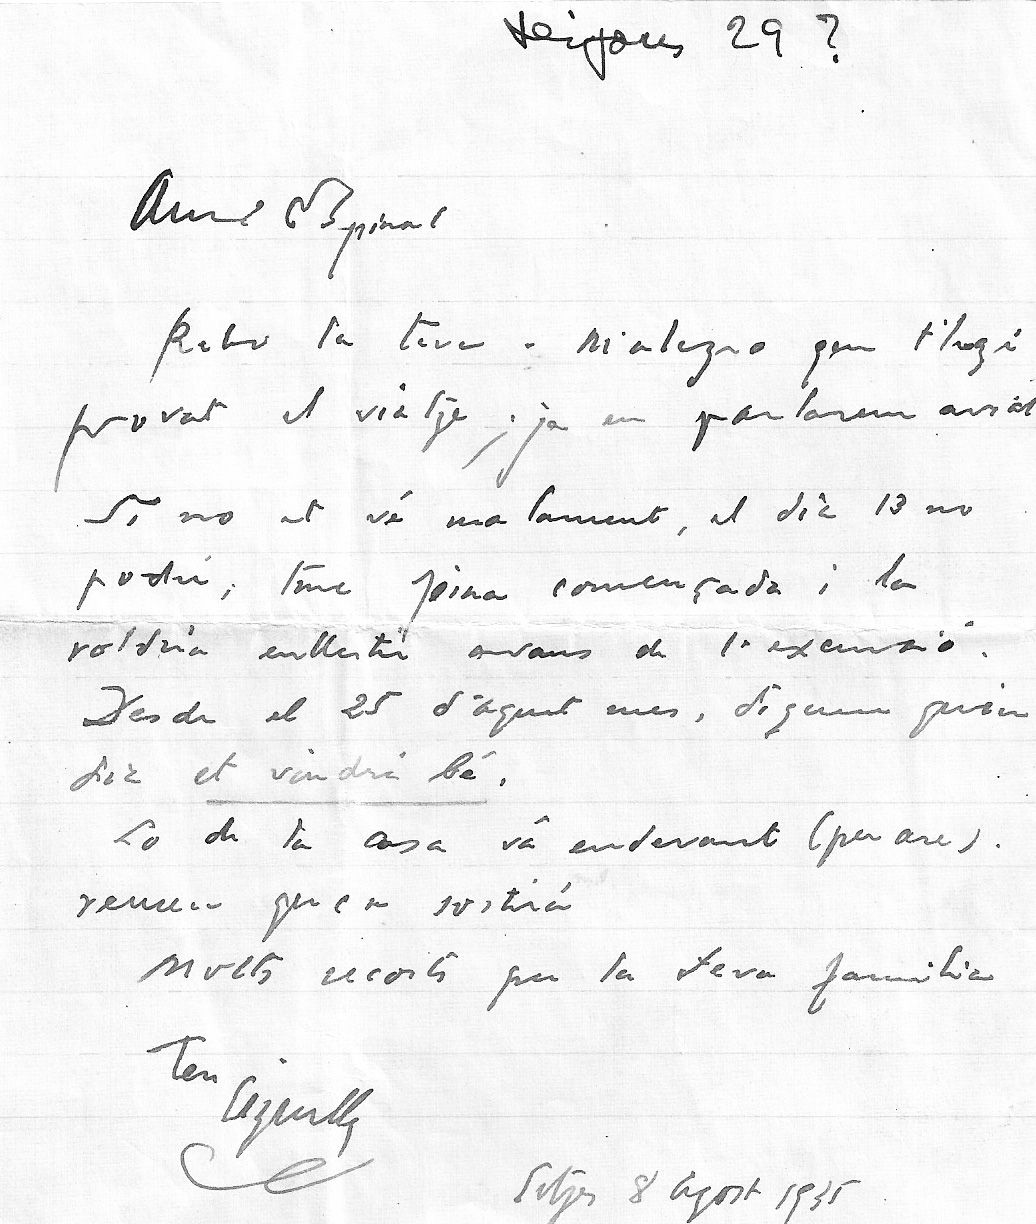 dijous 29?
Amic Espinal
Rebo la teva. M'alegro que t'hagi
provat el viatje, ja en parlarem aviat
Si no et vé malament, el dia 13 no
podré, tinc feina començada i la
voldria enllestir avans de l'excursió.
Desde el 25 d'aquet mes, diguem quin
dia et vindrà bé.
Lo de la casa vá endevant (per are).
veurem que en sortirá
Molts recorts per la teva familia
Teu
Sitjes 8 Agost 1935